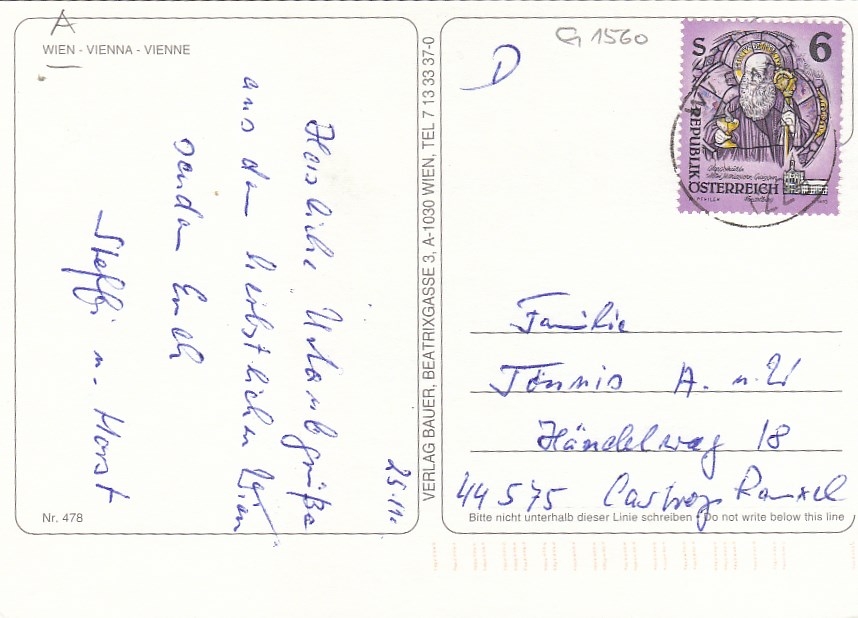 A
WIEN - VIENNA - VIENNE
25.11.
Herzliche Urlaubsgrüße
aus dem herbstlichen Wien
senden Euch
Steffi u. Horst
Nr. 478
VERLAG BAUER, BEATRIXGASSE 3, A-1030 WIEN, TEL 7 13 33 37-0
D
G 1560
S 6
REPUBLIK
ÖSTERREICH
Familie
Tönnis A. u. U
Händelweg 18
44575 Castrop Rauxel
Bitte nicht unterhalb dieser Linie schreiben • Do not write below this line